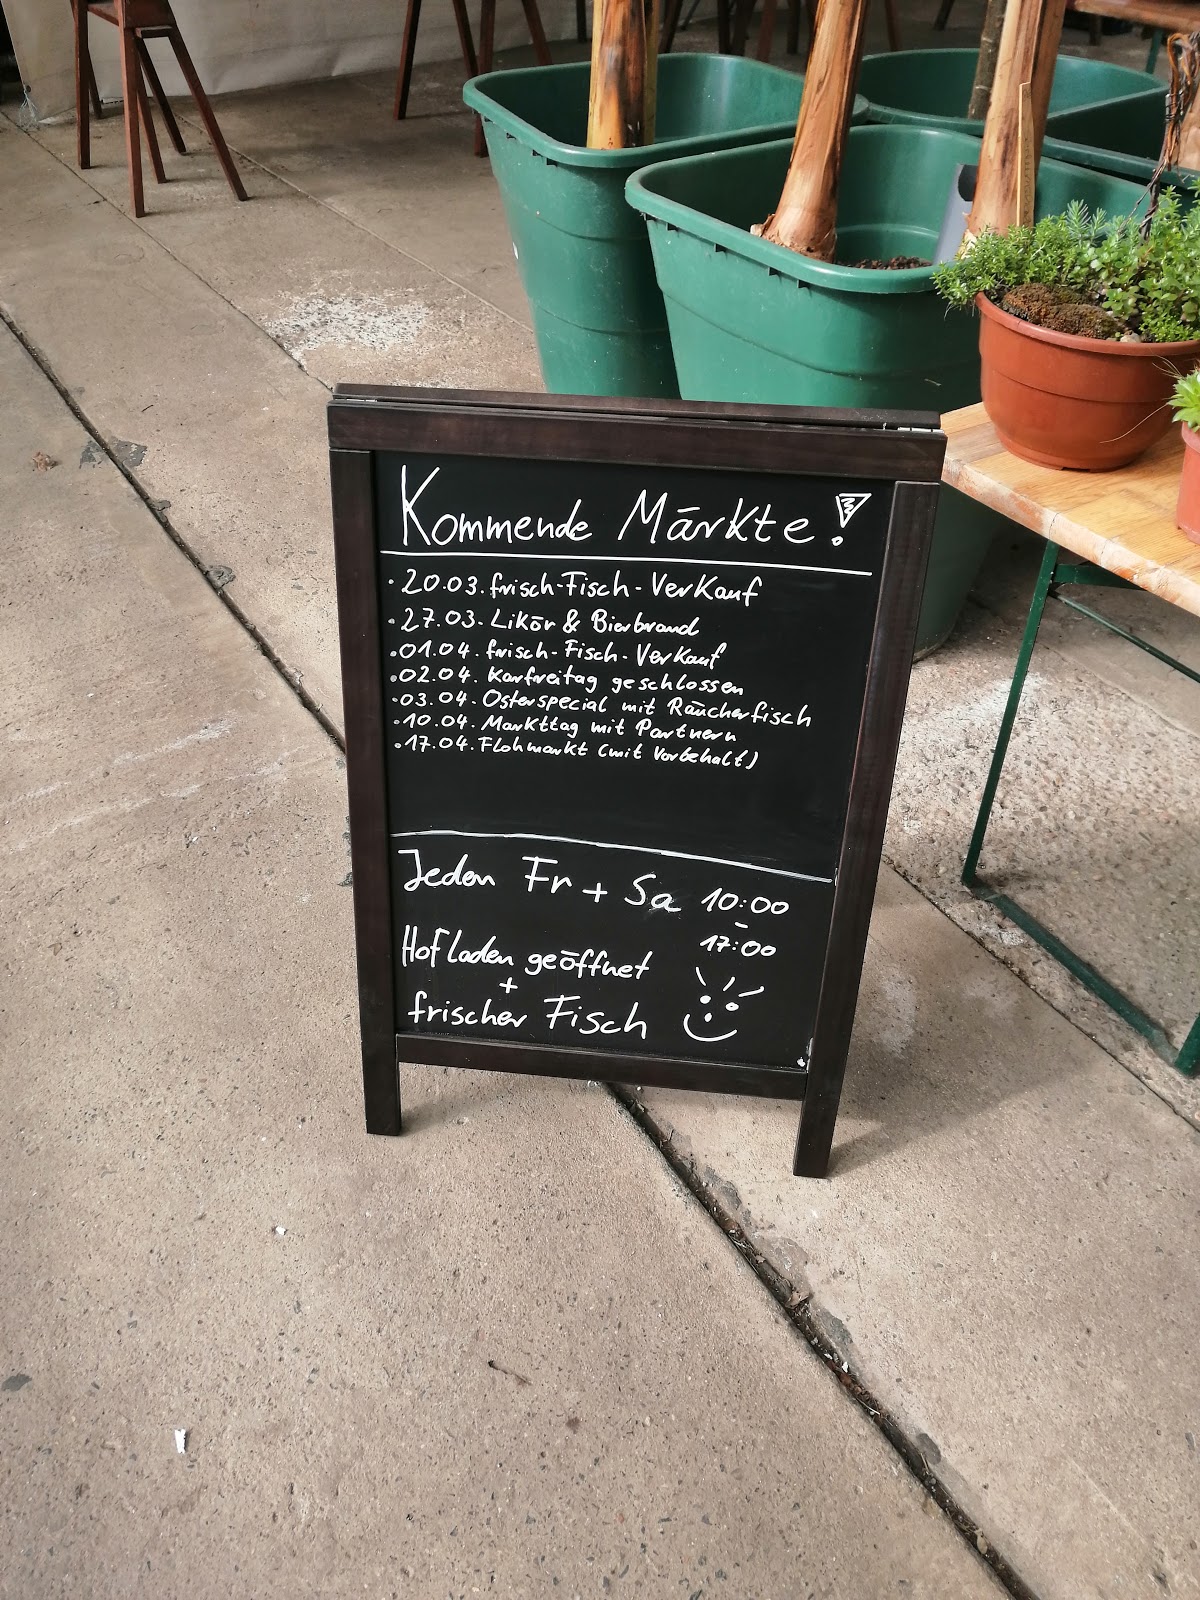 Kommende Märkte!
· 20.03. frisch-Fisch-Verkauf
· 27.03. Likör & Bierbrand
· 01.04. frisch-Fisch-Verkauf
· 02.04. Karfreitag geschlossen
· 03.04. Osterspecial mit Räucherfisch
· 10.04. Markttag mit Partnern
· 17.04. Flohmarkt (mit Vorbehalt)
Jeden Fr + Sa 10:00
- 17:00
Hofladen geöffnet
+
frischer Fisch